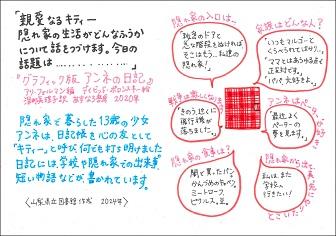 「親愛なるキティー
隠れ家の生活がどんなふうか
について話をつづけます。今日の
話題は……………」
『グラフィック版 アンネの日記』
アリ・フォルマン編 デイビッド・ポロンスキー絵
深町眞理子訳 あすなろ書房 2020年
隠れ家で暮らした13歳の少女
アンネは、日記帳を心の友として
"キティー"と呼び、何でも打ち明けました
日記には学校や隠れ家での出来事
短い物語などが書かれています。
〈山梨県立図書館作成 2024年〉
隠れ家の入口は…
「灰色のドアと
急な階段をぬければ
そこはもう、私達の
隠れ家！」
家族はどんな人？
「いつもマルゴーと
くらべられてばかり…」
「ママとはあらゆる点で
正反対です。」
「パパ、大好きよ。」
「きのう、近くに
飛行機が
落ちました。」
「最近よく
ペーターの
夢を見ます。」
隠れ家の食事は？
闇で買ったパン
かんづめのキャベツ
ミートローフ
ピクルス、豆。
「私は、また
学校へ
行きたい！」